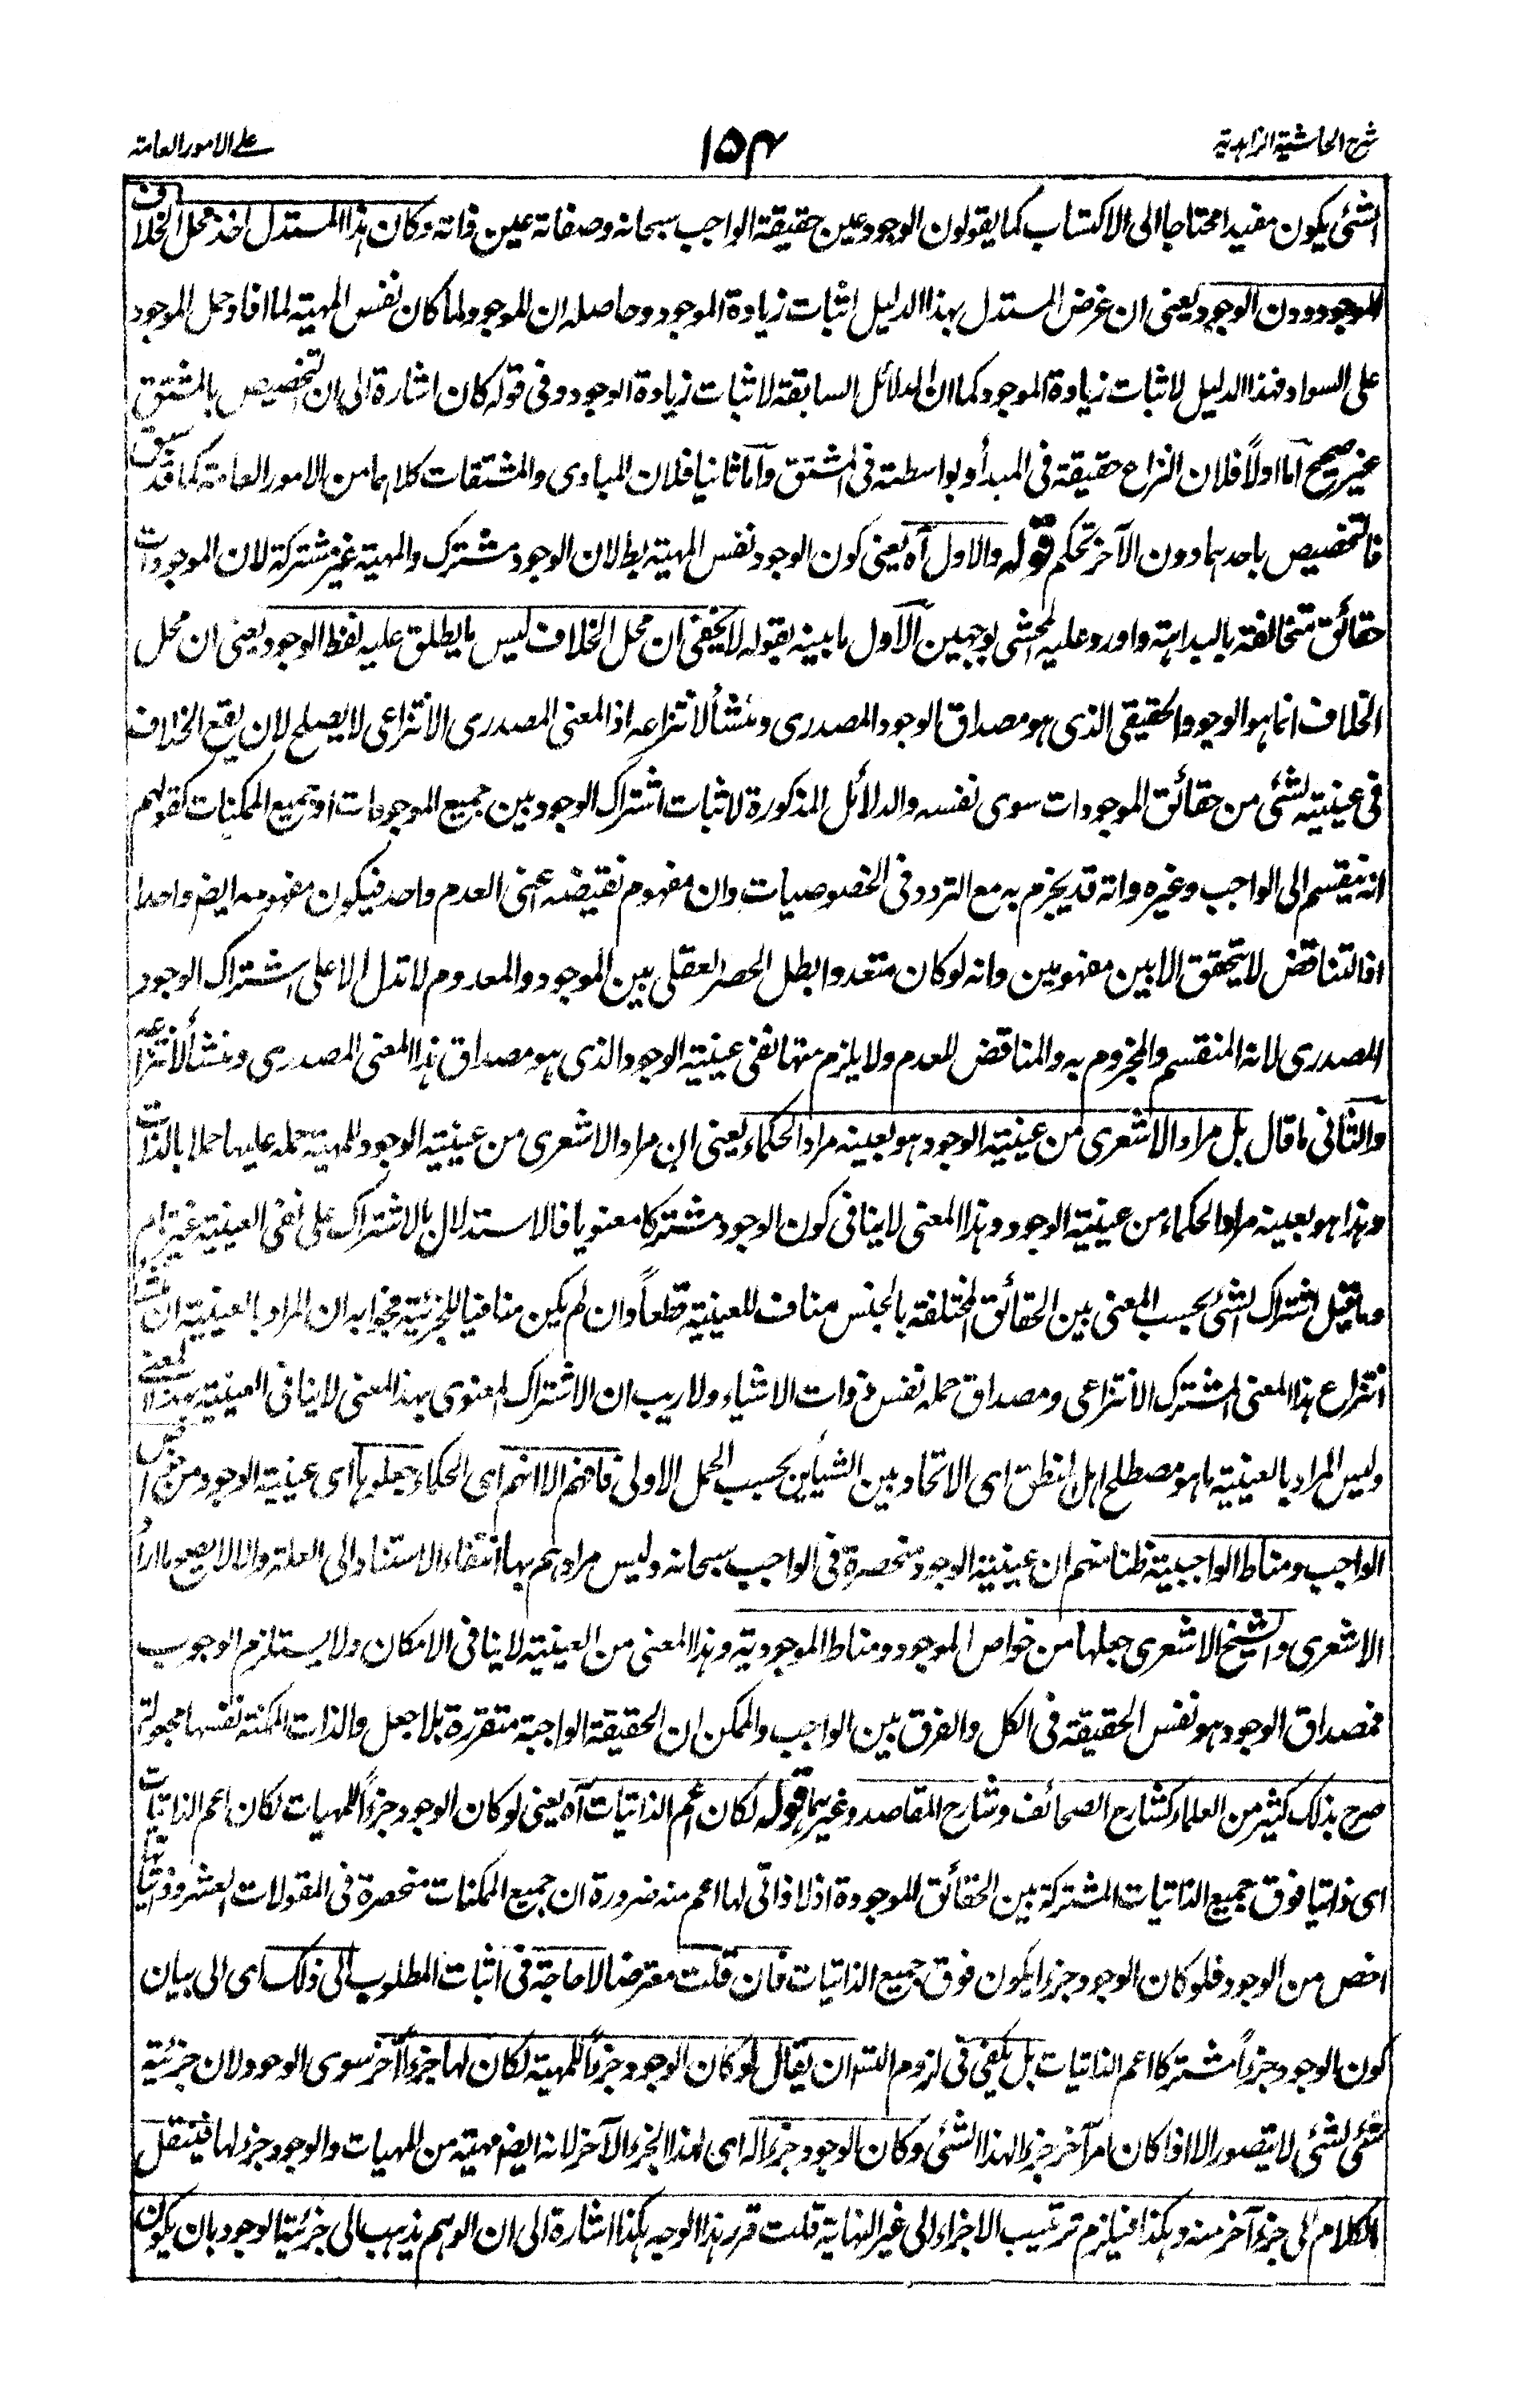 شرح الحاشية الزاهدية
١٥٤
على الامور العامة
الشئ يكون مفيدا محتاجا الى الاكتساب كما يقولون الوجود عين حقيقة الواجب سبحانه وصفاته عين ذاته وكان هذا المستدل اخذ محل الخلاف
الموجود دون الوجود يعنى ان غرض المستدل بهذا الدليل اثبات زيادة الموجود وحاصله ان الموجود لما كان نفس المهية لما افاد حمل الموجود
على السواد فهذا الدليل لاثبات زيادة الموجود كما ان الدلائل السابقة لاثبات زيادة الوجود وفى قوله كان اشارة الى ان التخصيص بالمشتق
غير صحيح اما اولاً فلان النزاع حقيقة فى المبدأ وبواسطته فى المشتق وآما ثانيا فلان المبادى والمشتقات كلاهما من الامور العامة كما قد سبق
فالتخصيص باحدهما دون الآخر تحكم قوله والاول آه يعنى كون الوجود نفس المهية بط لان الوجود مشترك والمهية غير مشتركة لان الموجودات
حقائق متخالفة بالبداهة واورد عليه المحشى بوجهين الآول ما بينه بقوله لا يخفى ان محل الخلاف ليس ما يطلق عليه لفظ الوجود يعنى ان محل
الخلاف انما هو الوجود الحقيقى الذى هو مصداق الوجود المصدرى ومنشأ لانتزاعه اذ المعنى المصدرى الانتزاعى لا يصلح لان يقع الخلاف
فى عينيته لشئ من حقائق الموجودات سوى نفسه والدلائل المذكورة لاثبات اشتراك الوجود بين جميع الموجودات او جميع الممكنات كقولهم
انه ينقسم الى الواجب وغيره وانه قد يجزم به مع التردد فى الخصوصيات وان مفهوم نقيضه اعنى العدم واحد فيكون مفهومه ايضر واحدا
اذ التناقض لا يتحقق الا بين مفهومين وانه لو كان متعددا بطل الحصر العقلى بين الموجود والمعدوم لا تدل الا على اشتراك الوجود
المصدرى لانه المنقسم والمجزوم به والمناقض للعدم ولا يلزم منها نفى عينية الوجود الذى هو مصداق هذا المعنى المصدرى ومنشأ لانتزاعه
والثانى ما قال بل مراد الاشعرى من عينية الوجود هو بعينه مراد الحكماء يعنى ان مراد الاشعرى من عينية الوجود للمهية حمله عليها حملا بالذات
وهذا هو بعينه مراد الحكماء من عينية الوجود وهذا المعنى لا ينافى كون الوجود مشتركا معنويا فالاستدلال بالاشتراك على نفى العينية غير تام
وما قيل اشتراك الشئ بحسب المعنى بين الحقائق المختلفة بالجنس مناف للعينية قطعاً وان لم يكن منافيا للجزئية فجوابه ان المراد بالعينية ان منشأ
انتزاع هذا المعنى المشترك الانتزاعى ومصداق حمله نفس ذوات الاشياء ولا ريب ان الاشتراك المعنوى بهذا المعنى لا ينافى العينية بهذا المعنى
وليس المراد بالعينية ما هو مصطلح اهل المنطق اى الاتحاد بين الشيأين بحسب الحمل الاولى فافهم الا انهم اى الحكماء جعلوها اى عينية الوجود من خواص
الواجب ومناط الواجبية ظنا منهم ان عينية الوجود منحصرة فى الواجب سبحانه وليس مرادهم بها انتفاء الاستناد الى العلة والا لا يصح ما اراد
الاشعرى والشيخ الاشعرى جعلها من خواص الموجود ومناط الموجودية وهذا المعنى من العينية لا ينافى الامكان ولا يستلزم الوجوب
فمصداق الوجود هو نفس الحقيقة فى الكل والفرق بين الواجب والممكن ان الحقيقة الواجبة متقررة بلا جعل والذات الممكنة نفسها مجعولة
صرح بذلك كثير من العلماء كشارح الصحائف وشارح المقاصد وغيرهما قوله لكان اعم الذاتيات آه يعنى لو كان الوجود جزءاً للمهيات لكان اعم الذاتيات
اى ذاتيا فوق جميع الذاتيات المشتركة بين الحقائق الموجودة اذ لا ذاتى لها اعم منه ضرورة ان جميع الممكنات منحصرة فى المقولات العشر وذاتياتها
اخص من الوجود فلو كان الوجود جزءا يكون فوق جميع الذاتيات فان قلت معترضا لا حاجة فى اثبات المطلوب الى ذلك اى الى بيان
كون الوجود جزءاً مشتركا اعم الذاتيات بل يكفى فى لزوم التسـ ان يقال لو كان الوجود جزءاً للمهية لكان لها جزءاً آخر سوى الوجود لان جزئية
شئ لشئ لا يتصور الا اذا كان امر آخر جزءا لهذا الشئ وكان الوجود جزءا له اى لهذا الجزء الآخر لانه ايضر مهية من المهيات والوجود جزء لها فينتقل
الكلام الى جزء آخر منه وهكذا فيلزم ترتيب الاجزاء الى غير النهاية قلت قرر هذا الوجه هكذا اشارة الى ان الوهم يذهب الى جزئية الوجود بان يكون